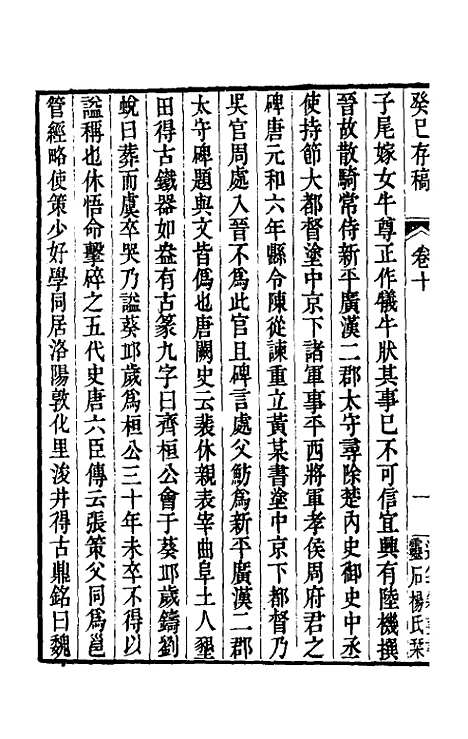 癸巳存稿 卷十 一 靈石楊氏栞
子尾嫁女牛尊正作犧牛狀其事已不可信宜興有陸機撰
晉故散騎常侍新平廣漢二郡太守尋除楚內史御史中丞
使持節大都督塗中京下諸軍事平西將軍孝侯周府君之
碑唐元和六年縣令陳從諫重立黃某書塗中京下都督乃
吳官周處入晉不爲此官且碑言處父魴爲新平廣漢二郡
太守碑題與文皆僞也唐闕史云裴休親表宰曲阜土人墾
田得古鐵器如盎有古篆九字曰齊桓公會于葵邱歲鑄劉
蛻曰葬而虞卒哭乃諡葵邱歲爲桓公三十年未卒不得以
諡稱也休悟命擊碎之五代史唐六臣傳云張策父同爲邕
管經略使策少好學同居洛陽敦化里浚井得古鼎銘曰魏